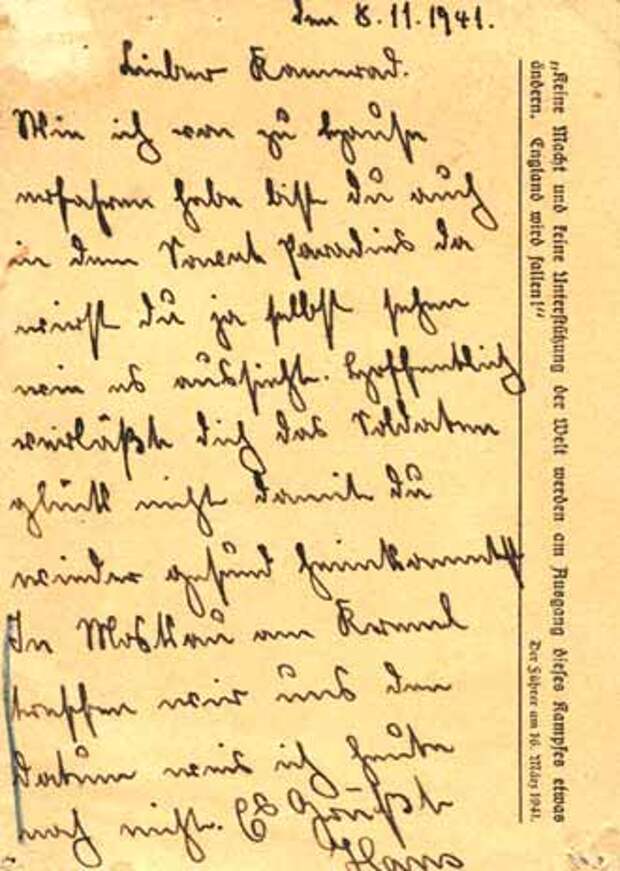 den 8.11.1941.
Lieber Kamerad.
Wie ich von zu Hause
erfahren habe bist du auch
in dem Sowjet Paradies da
wirst du ja selbst sehen
wie es aussieht. Hoffentlich
verläßt dich das Soldaten
glück nicht damit du
wieder gesund heimkommst
In Moskau am Kreml
treffen wir uns den
datum weis ich heute
noch nicht. Es Grüßt
Hans
„Keine Macht und keine Unterstützung der Welt werden am Ausgang dieses Kampfes etwas
ändern. England wird fallen!“
Der Führer am 16. März 1941.